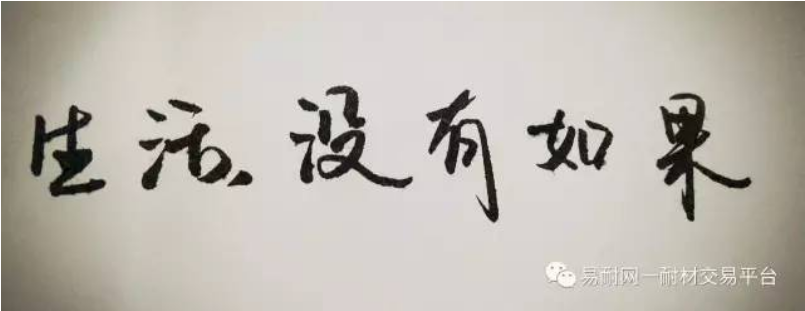 生活、没有如果
易耐网一耐材交易平台